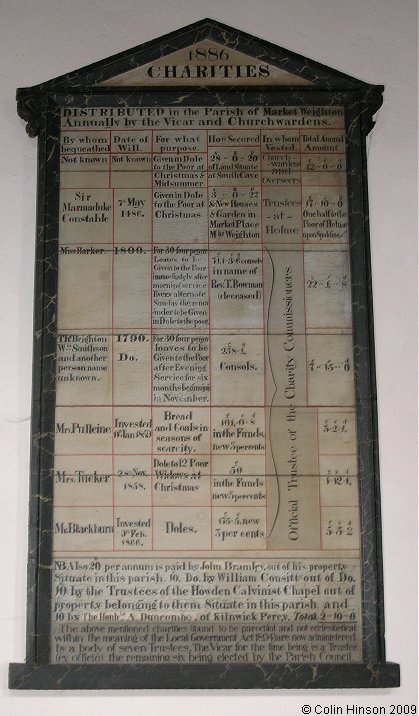 1886
CHARITIES
DISTRIBUTED in the Parish of Market Weighton
Annually by the Vicar and Churchwardens.
By whom bequeathed
Date of Will.
For what purpose.
How Secured
In whom Vested.
Total Annual Amount.
Not known
Not known
Given in Dole
to the Poor at
Christmas &
Midsummer
28 - 0 - 20
of Land Situate
at South Cave
Church-
wardens
and
Overseers
42 - 0 - 0
Sir
Marmaduke
Constable
7th May
1486.
Given in Dole
to the Poor at
Christmas
& New Houses
& Garden in
Market Place
Mt Weighton
Trustees
- at -
Holme
17 - 10 - 0
One half to the
Poor of Holme
upon Spalding
Miss Barker.
1800.
For 30 four penny
Loaves to be
Given to the Poor
immediately after
morning service
Every alternate
Sunday the remain
inder to be Given
in Dole to the poor.
Consols
in name of
Rev. T. Bowman
(deceased)
Official Trustee of the Charity Commissioners
Brighton
Wm Smithson
and another
person name
unknown.
1790.
Do.
For 30 four penny
loaves to be
Given to the Poor
after Evening
Service for six
months beginning
in November.
Consols.
7 - 15 - 0
Mrs. Pulleine
Invested
Bread
and Coals in
seasons of
scarcity.
104 - 0 - 8
in the Funds.
new 3 percents
3 - 2 - 4
Mrs. Tucker
28th Nov.
1858.
Dole to 12 Poor
Widows at
Christmas
50
in the Funds
new 3 percents
Mr. Blackburn
Invested
Feb.
1866.
Doles.
new
3 per cents
NB Also 20/ per annum is paid by John Bramley, out of his property
Situate in this parish. 10. Do. by William Consitt out of Do.
10 by the Trustees of the Howden Calvinist Chapel out of
property belonging to them Situate in this parish. and
10 by The Honble A. Duncombe, of Kilnwick Percy. Total 2 - 10 - 0
The above mentioned charities (found to be parochial and not ecclesiastical
within the meaning of the Local Government Act 1894) are now administered
by a body of seven Trustees, The Vicar for the time being is a Trustee
(ex officio) the remaining six being elected by the Parish Council.
© Colin Hinson 2009